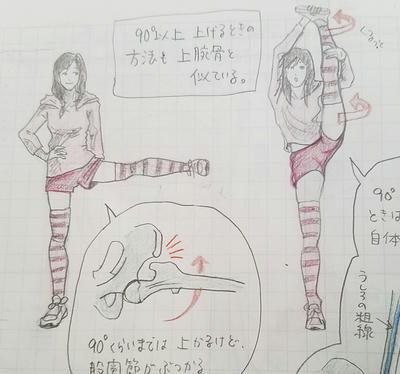 90°以上 上げるときの
方法も 上腕骨と
似ている。
ぐるっと
90°
ときは
自体
うしろの粗線
90°くらいまでは 上がるけど、
股関節がぶつかる